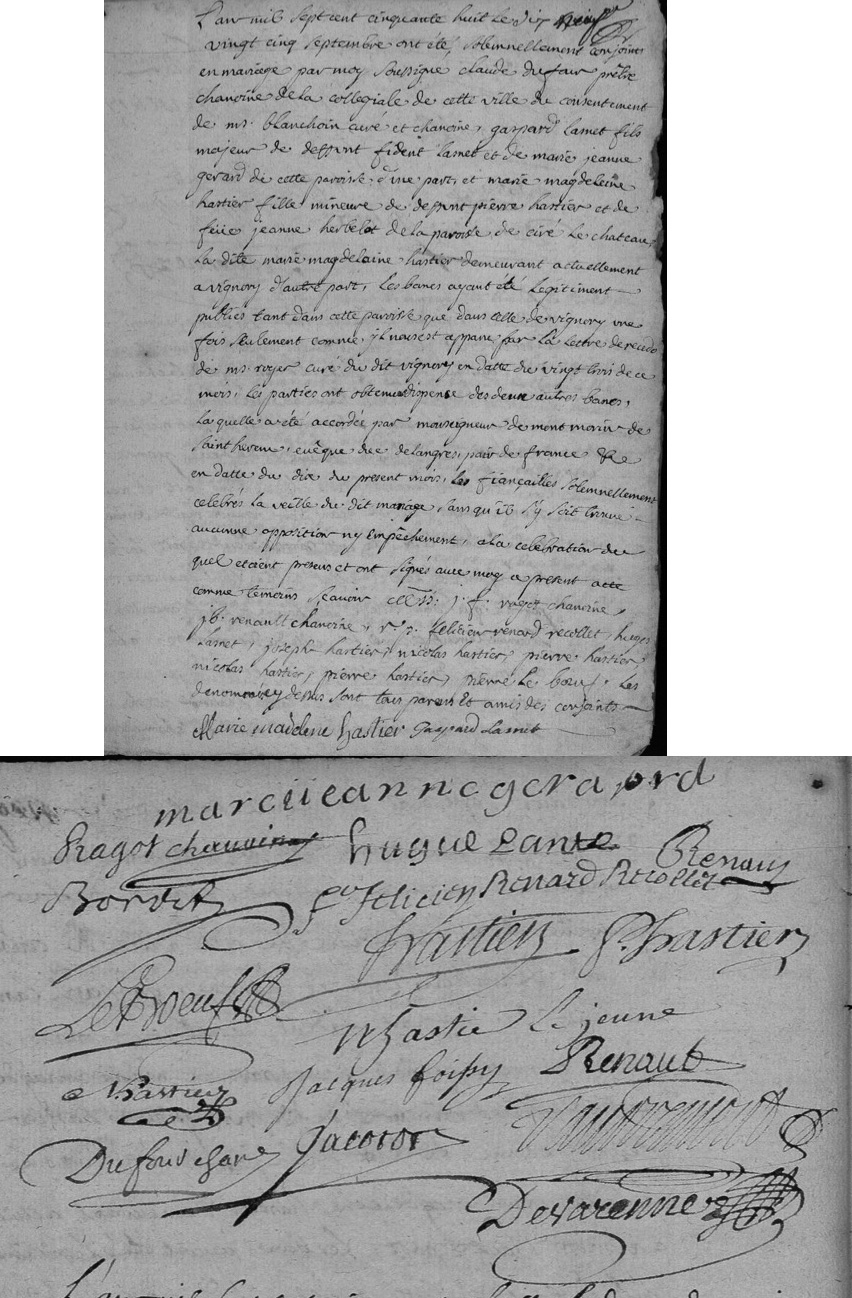 L'an mil sept cent cinquante huit le dix neuf
vingt cinq septembre ont été solemnellement conjoint
en mariage par moy soussigné claude dufour prêtre
chanoine de la collegiale de cette ville du consentement
de mr. blanchoin curé et chanoine, gaspard lamet fils
majeur de deffunt fident lamet et de marie jeanne
gerard de cette paroisse d'une part, et marie magdeleine
hastier fille mineure de deffunt pierre hastier et de
feüe jeanne herbelot de la paroisse de ciré le chateau,
la dite marie magdelaine hastier demeurant actuellement
a vignory d'autre part, les bancs ayant été legitiment
publiés tant dans cette paroisse que dans celle de vignory une
fois seulement comme il nous est apparu par la lettre de recedo
de mr. royer curé du dit vignory en datte du vingt trois de ce
mois, les parties ont obtenu dispense des deux autres bancs,
la quelle a été accordée par monseigneur de montmorin de
saint herem, evêque duc de langres, pair de france &c
en datte du dix du present mois, les fiançailles solemnellement
celebrés la veille du dit mariage, sans qu'il s'y soit trouvé
aucunne opposition ny empêchement, a la celebration du
quel etoient presens et ont signés avec moy a present acte
comme temoins scavoir j. f. ragot chanoine,
jb. renault chanoine, felicien renard recollet, hugue
lamet, joseph hastier, nicolas hastier, pierre hastier,
nicolas hastier, pierre hastier, pierre le boeuf. les
denommés cy dessus sont tous parens et amis des conjoints
Marie madelene hastier gaspard lamet
marei ieanne gerapord
Ragot chanoine hugue Lamte Renaut
Bordet fr felicien Renard Recollet
hastier P. hastier
LeBoeuf
N hastie le jeune
N hastier Jacques foissy Renaut
Dufour chane Jacotot
Devarenne